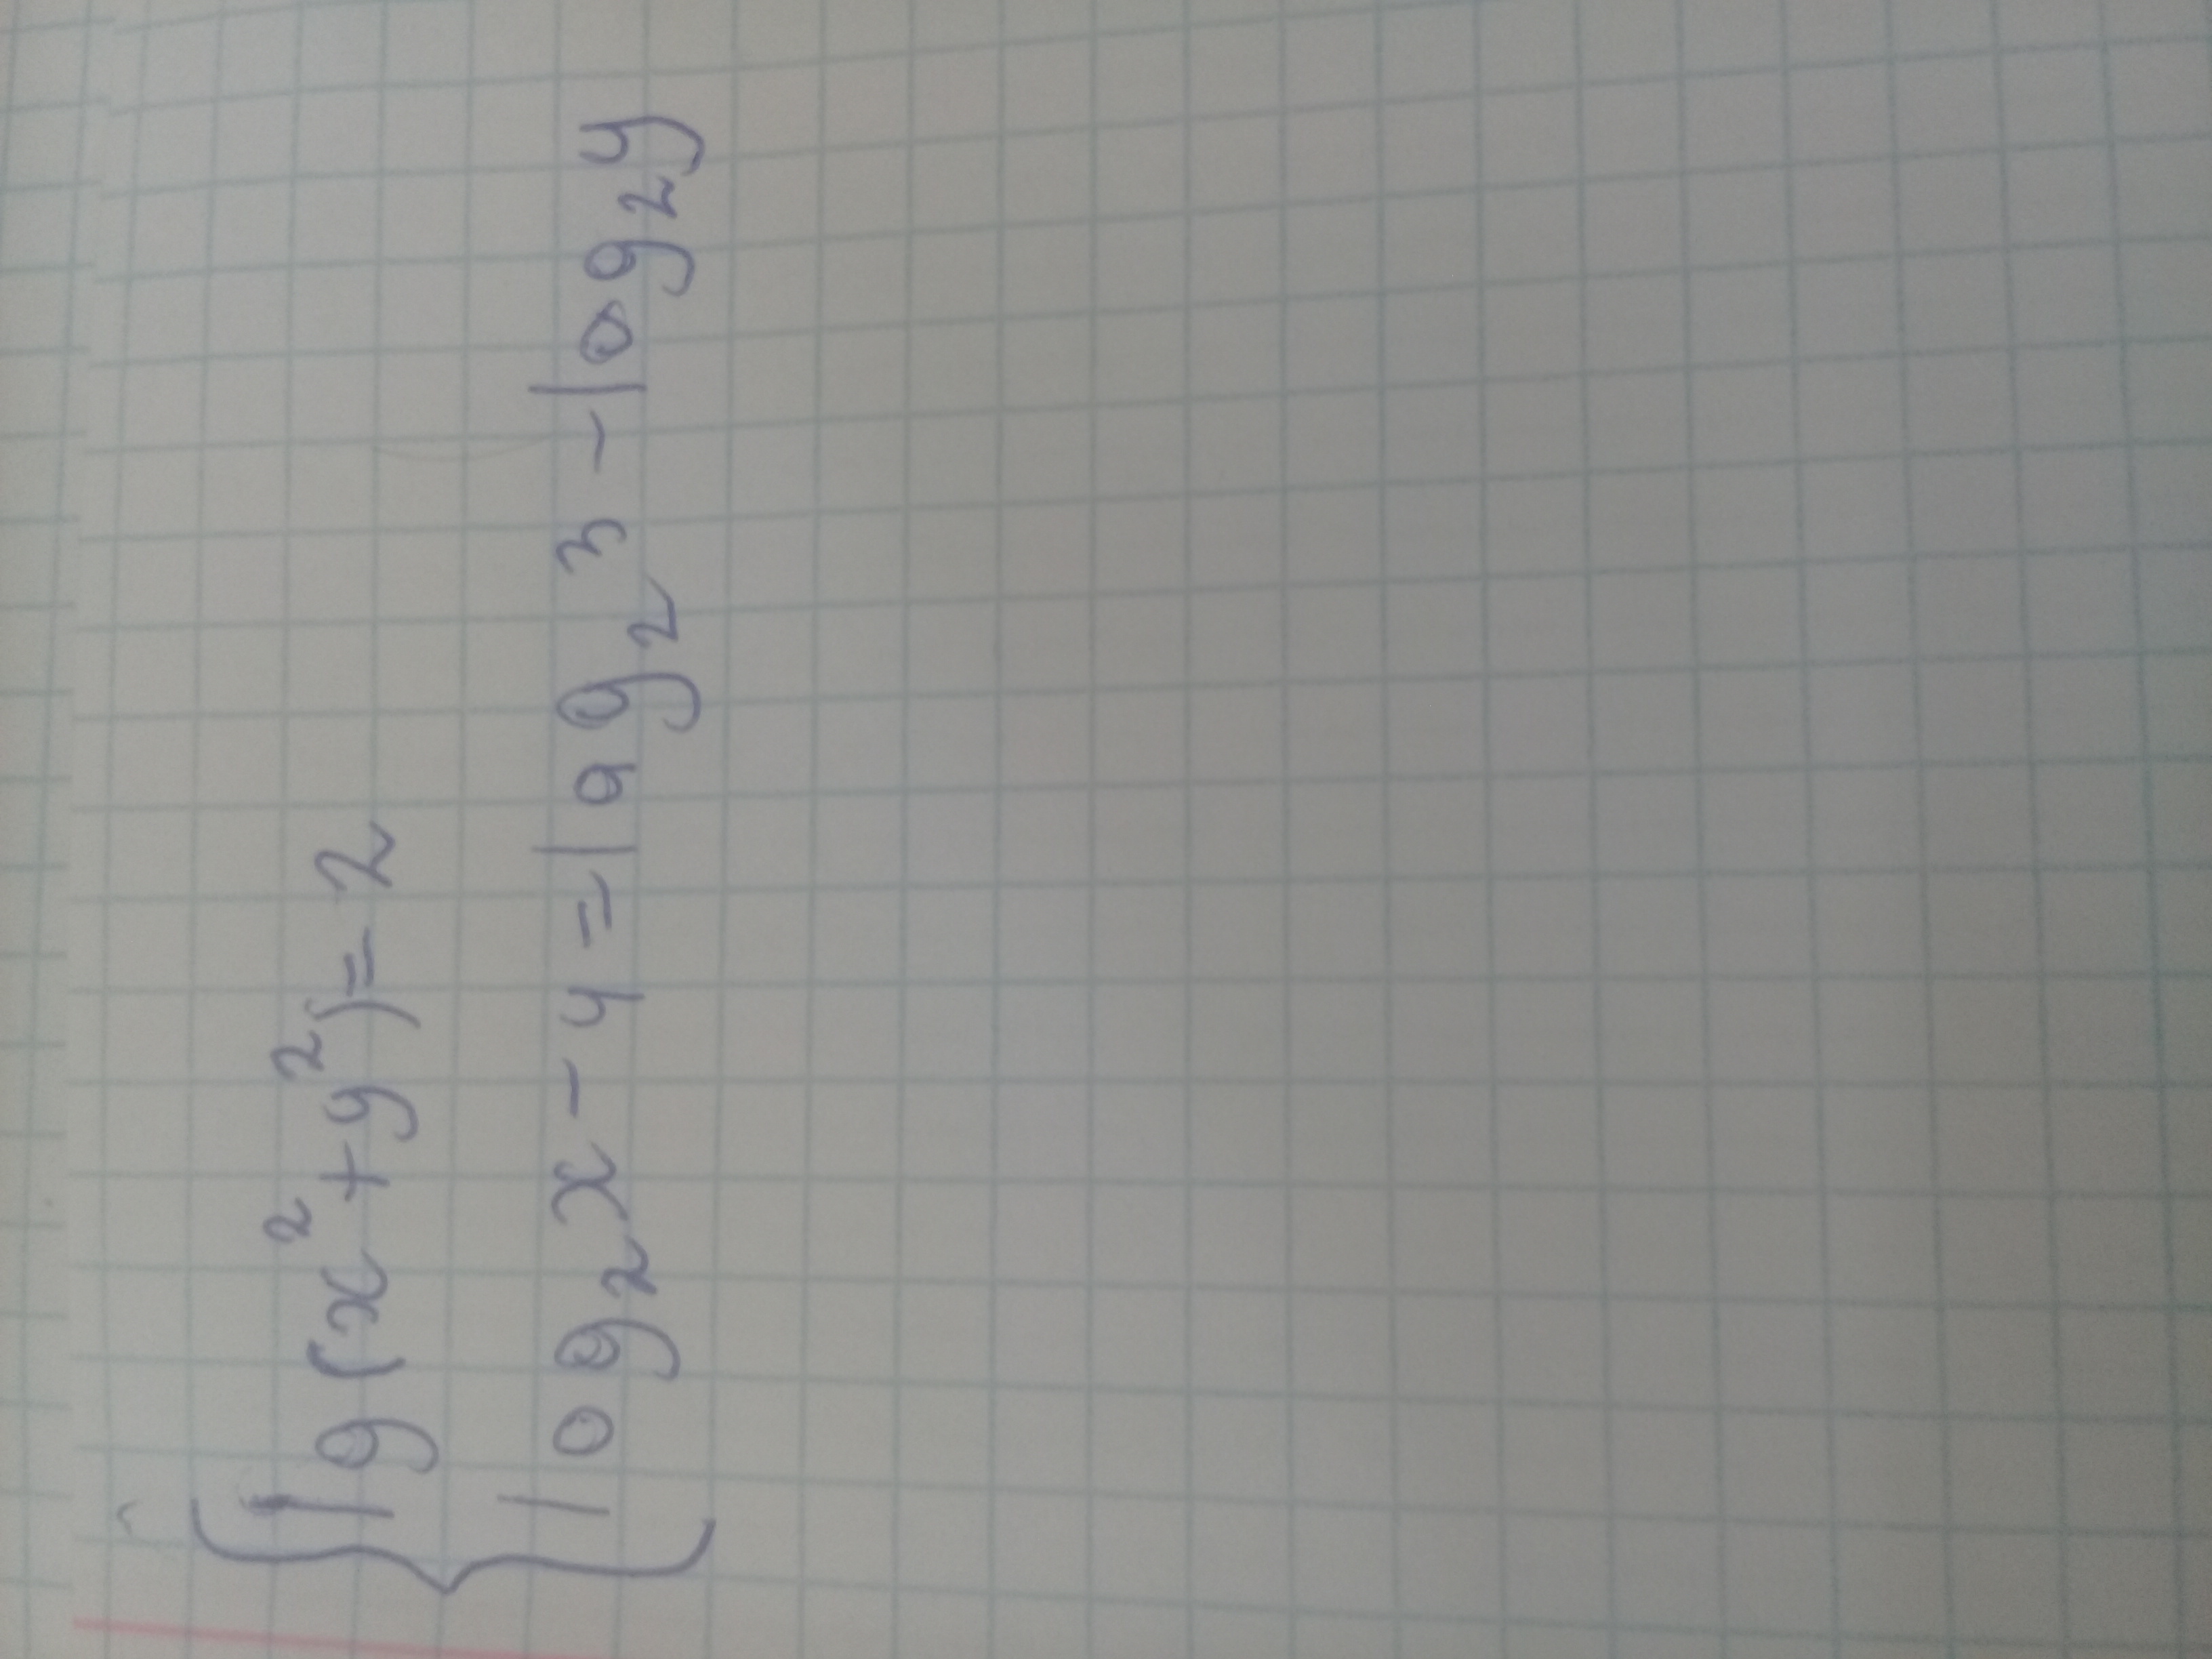 lg(x²+y²)=2
log₂x-4=log₂3-log₂y